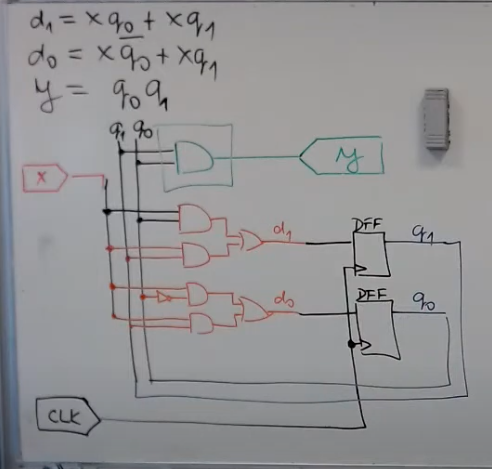 d₁ = x q₀ + x q₁
d₀ = x q̅₀ + x q₁
y = q₀ q₁
q₁ q₀
x
y
d₁
DFF
q₁
d₀
DFF
q₀
CLK